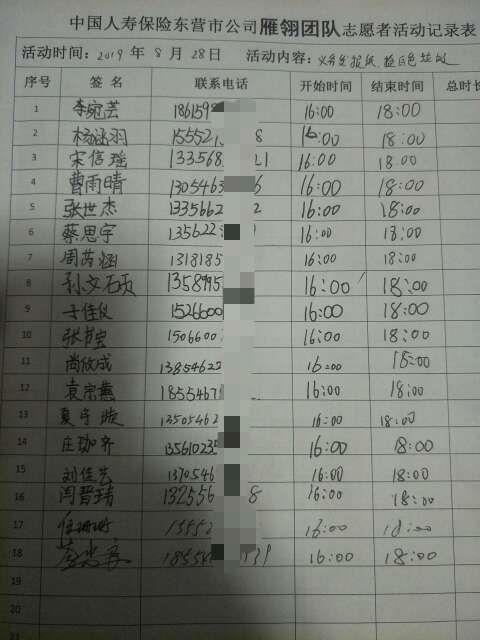 中国人寿保险东营市公司雁翎团队志愿者活动记录表
活动时间：2019年8月28日 活动内容：义务发报纸 捡白色垃圾
序号 签名 联系电话 开始时间 结束时间 总时长
1 李宛芸 186159 16:00 18:00
2 杨涵羽 15552 8 16:00 18:00
3 宋信瑶 133568 21 16:00 18:00
4 曹雨晴 1305463 6 16:00 18:00
5 张世杰 1335662 2 16:00 18:00
6 蔡思宇 135622 16:00 18:00
7 周芮涵 1318185 16:00 18:00
8 孙文硕 1358995 16:00 18:00
9 于佳仪 1526600 16:00 18:00
10 张书宝 1506600 16:00 18:00
11 尚攸成 13854622 16:00 18:00
12 袁宗燕 1855467 16:00 18:00
13 夏宇 13505462 16:00 18:00
14 庄珈齐 13561023 16:00 18:00
15 刘佳艺 1370546 16:00 18:00
16 闫晋琦 132556 8 16:00 18:00
17 15552 16:00 18:00
18 1855 39 16:00 18:00
19
20
21
22